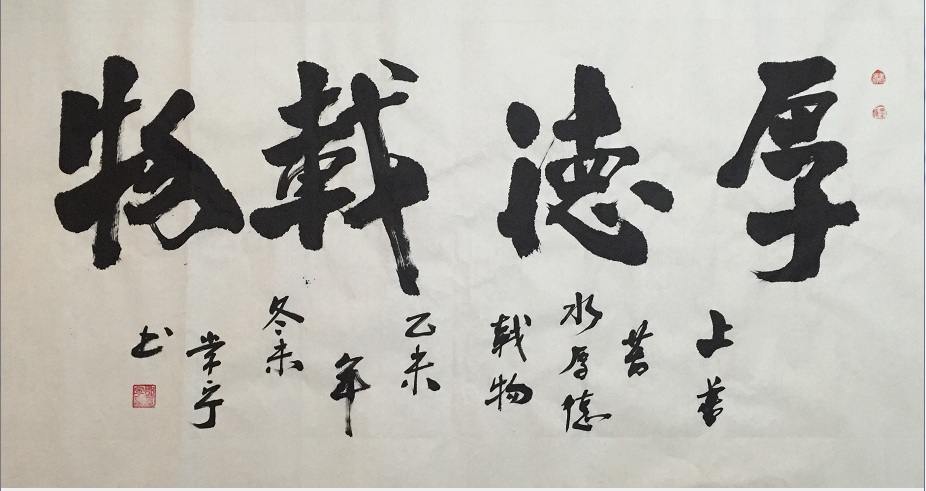 厚德載物
上善
若
水厚德
載物
乙未
年
冬末
常宁
书